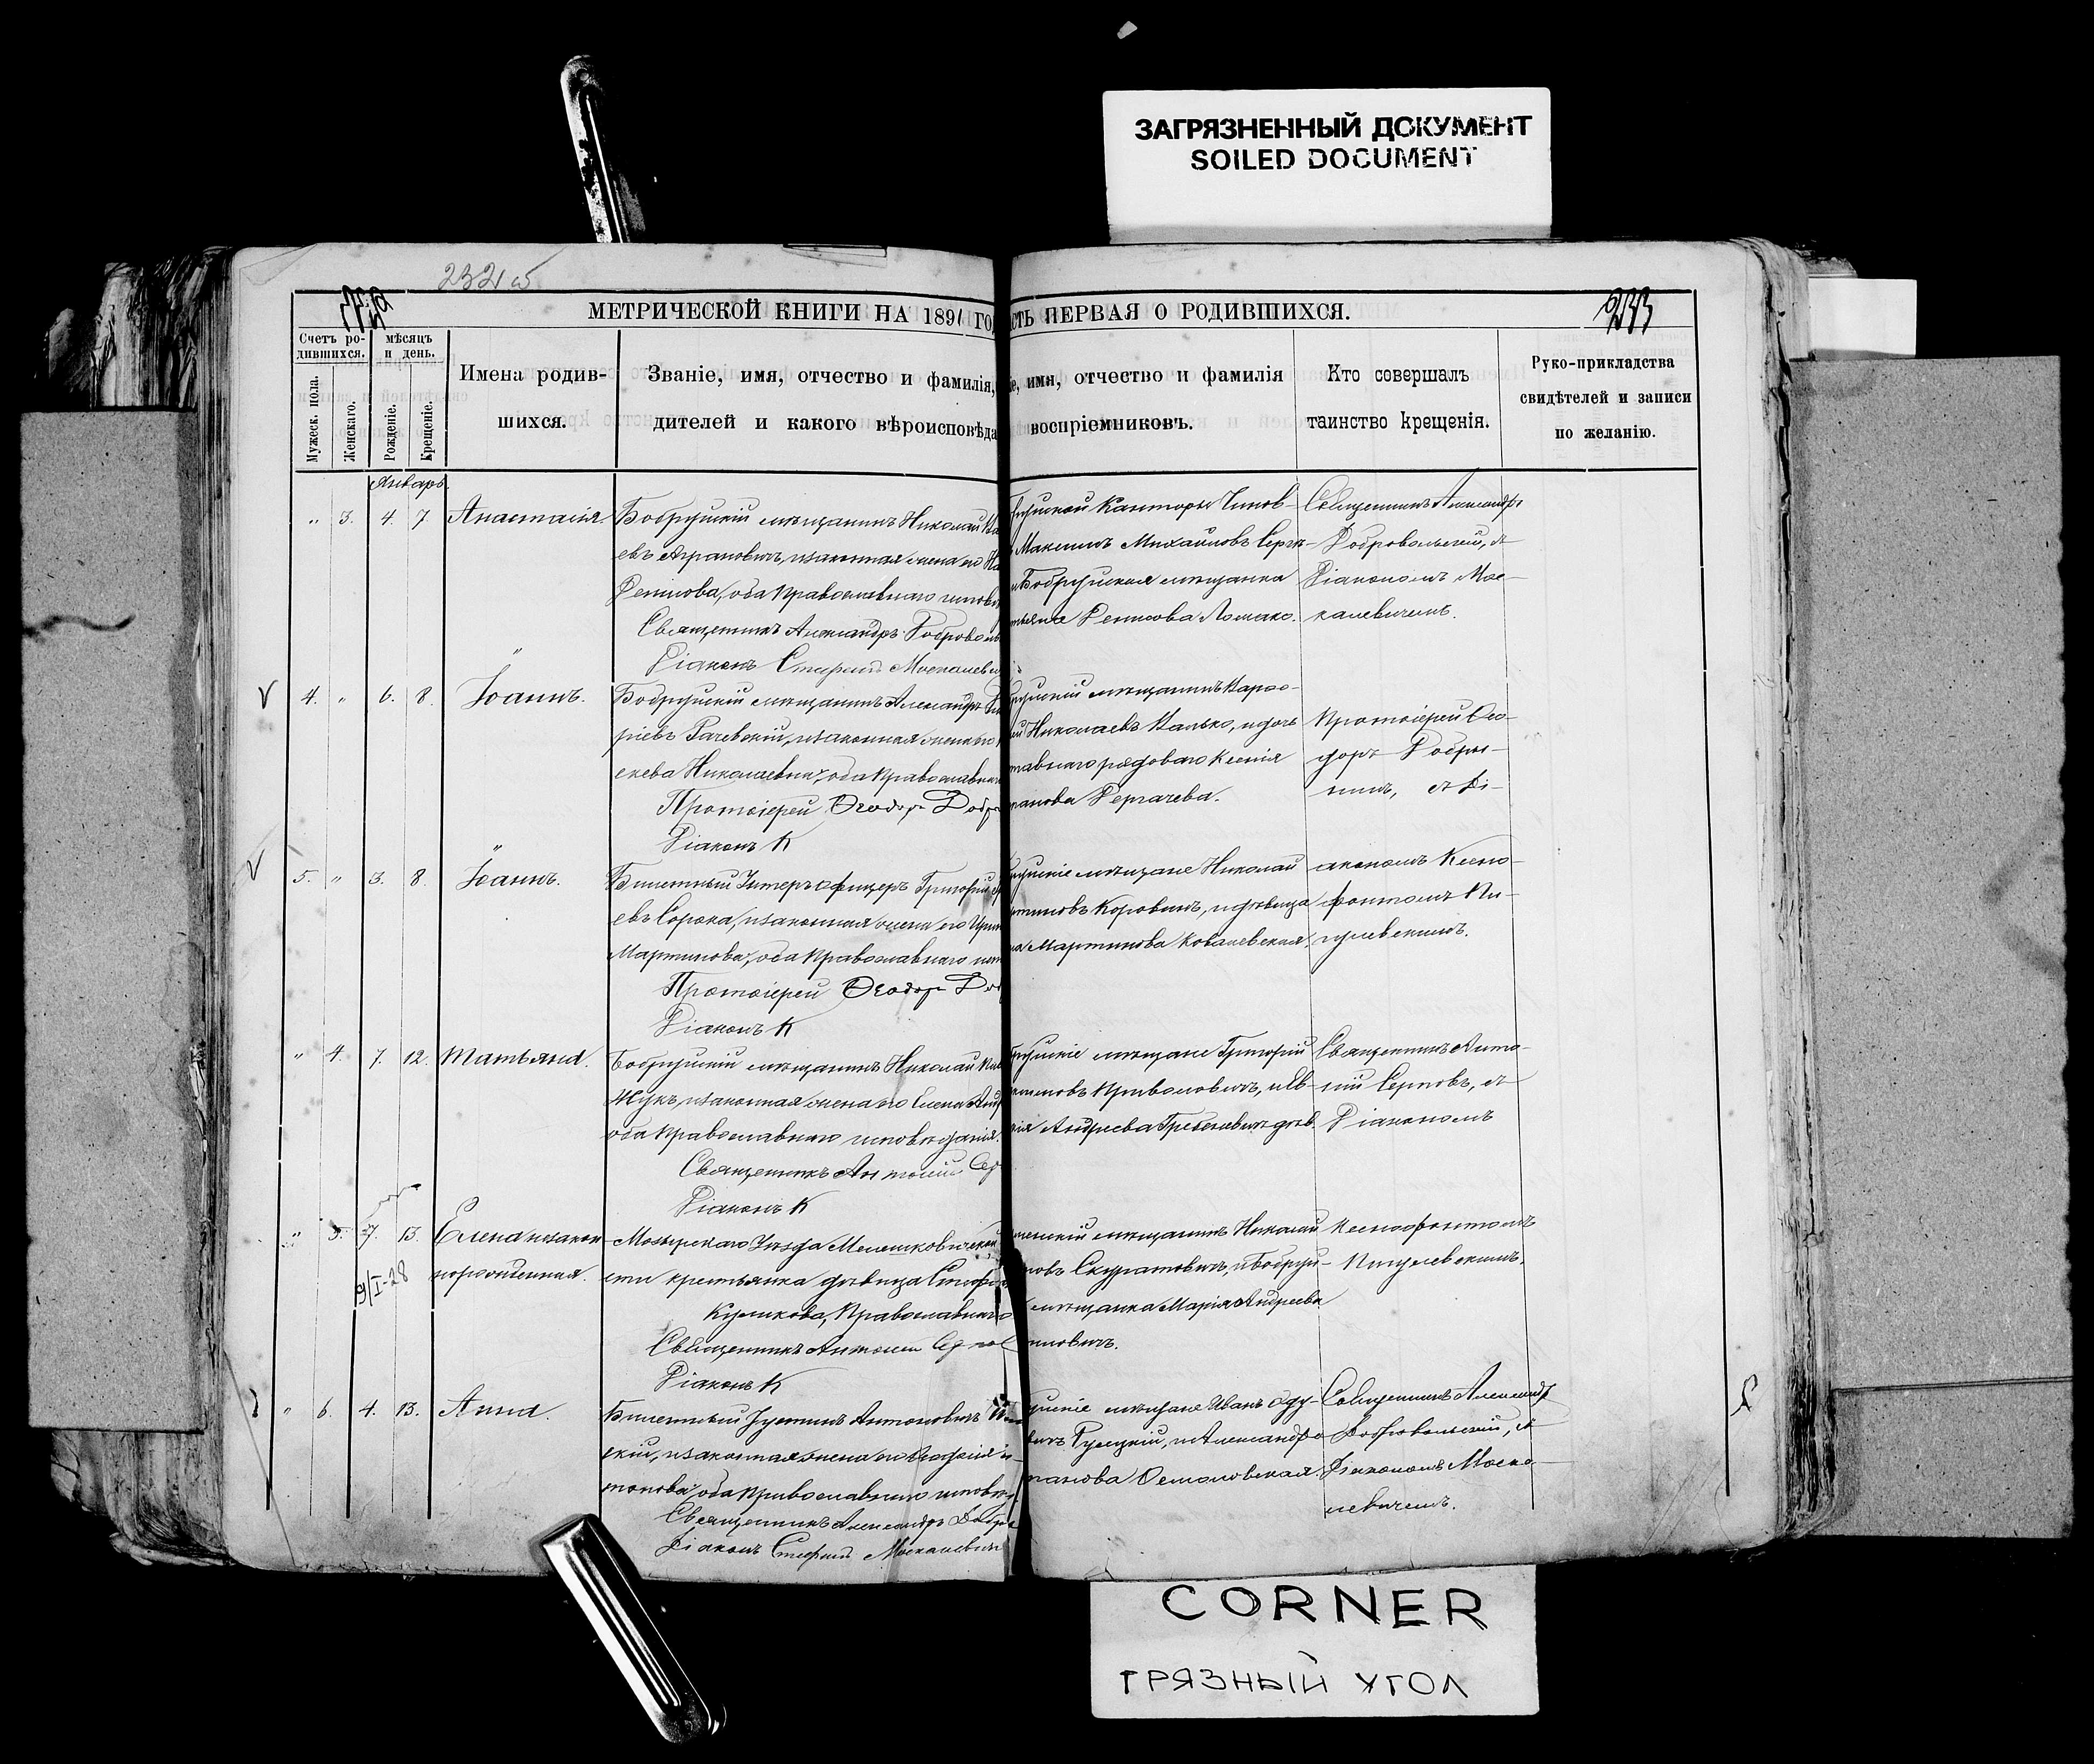 ЗАГРЯЗНЕННЫЙ ДОКУМЕНТ
SOILED DOCUMENT
232 об
233
МЕТРИЧЕСКОЙ КНИГИ НА 1891 ГО
СТЬ ПЕРВАЯ О РОДИВШИХСЯ.
Счетъ ро-
дившихся.
мѣсяцъ
и день.
Мужеск. пола.
Женскаго.
Рожденіе.
Крещеніе.
Имена родив-
шихся.
Званіе, имя, отчество и фамилія,
дителей и какого вѣроисповѣда
іе, имя, отчество и фамилія
воспріемниковъ.
Кто совершалъ
таинство крещенія.
Руко-прикладства
свидѣтелей и записи
по желанію.
Январь.
" 3. 4. 7. Анастасія
Бобруйскій мѣщанинъ Николай
евъ Аграновичъ, и законная жена его
Денисова, оба Православнаго исповѣ
Священникъ Александръ Доброволь
Діаконъ Стефанъ Москалеви
Канторы Чинов-
Максимъ Михайловъ Серги-
Бобруйская мѣщанка
Денисова Ломако.
Священникъ Александръ
Добровольскій, съ
Діакономъ Мос-
калевичемъ.
4. " 6. 8. Іоаннъ.
Бобруйскій мѣщанинъ Александръ
ріевъ Рачевскій, и законная жена его
Николаевна, оба Православна
Протоіерей Ѳеодоръ Добр
Діаконъ К
руйскій мѣщанинъ Варфо-
ей Николаевъ Валько, и дочь
тавнаго рядоваго Ксенія
Дергачева.
Протоіерей Ѳео-
доръ Добры-
нинъ, съ Ді-
5. " 3. 8. Іоаннъ.
Билетный Унтеръ офицеръ Григорій
евъ Сорока, и законная жена его Ирин
Мартинова, оба Православнаго исп
Протоіерей Ѳеодоръ Доб
Діаконъ К
руйскіе мѣщане Николай
Мартиновъ Коровинъ, и дѣвица
Мартинова Ковалевская.
акономъ Ксено-
фонтомъ Пи-
гулевскимъ.
" 4. 7. 12. Татьяна.
Бобруйскій мѣщанинъ Николай
Жукъ, и законная жена его Елена Анд
оба Православнаго исповѣданія.
Священникъ Антоній Сер
Діаконъ К
руйскіе мѣщане Григорій
Приваловичъ, и Ев-
Андреева Гребеневичъ дѣв.
Священникъ Анто-
ній Серповъ, съ
Діакономъ
" 5. 7. 13. Елена незакон
норожденная.
9/I-28
Мозырскаго Уѣзда Мелешковичской
сти крестьянка дѣвица Стефа
Куликова, Православнаго
Священникъ Антоній Серпов
Діаконъ К
мѣщанинъ Николай
Скуратовичъ, и Бобруй-
мѣщанка Марія Андреева
новичъ.
Ксенофонтомъ
Пигулевскимъ.
" 6. 4. 13. Анна.
Билетный Іустинъ Антоновичъ
скій, и законная жена его
тонова, оба Православнаго исповѣд
Священникъ Александръ Добро
Діаконъ Стефанъ Москалевич
руйскіе мѣщане Иванъ
Рудецкій, и Александра
Осмоловская.
Священникъ Александръ
Добровольскій, съ
Діакономъ Моска-
левичемъ.
CORNER
ГРЯЗНЫЙ УГОЛ